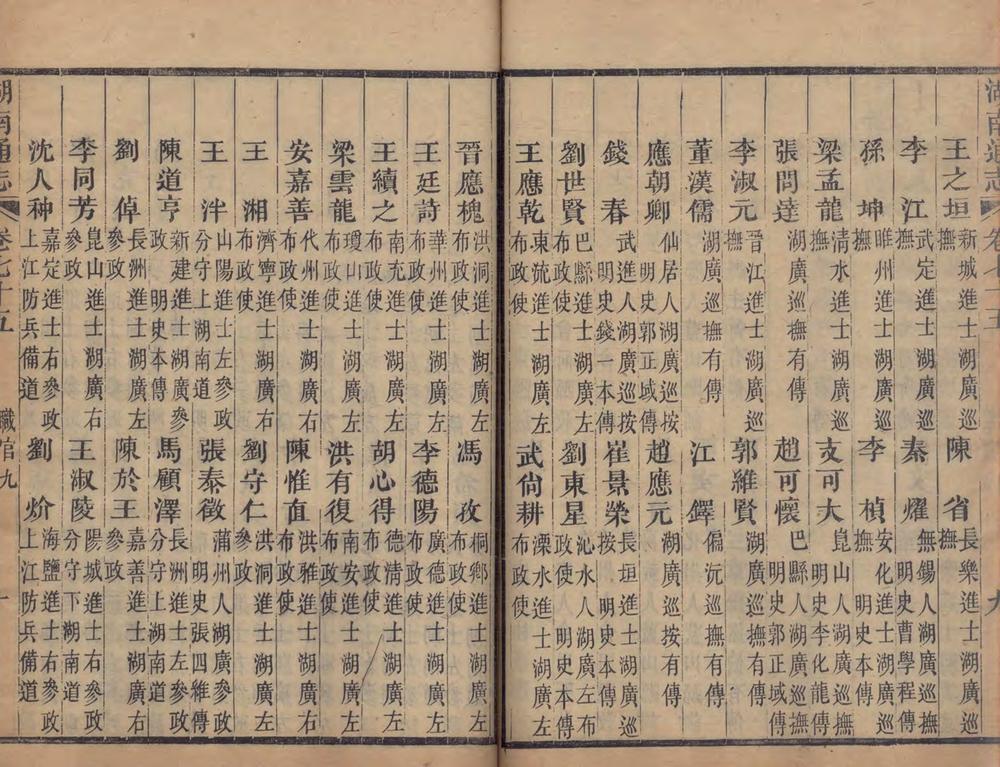 湖南通志 卷七十五
王之垣 新城進士湖廣巡撫 陳省 長樂進士湖廣巡撫
李江 武定進士湖廣巡撫 秦燿 無錫人湖廣巡撫明史曹學程傳
孫坤 睢州進士湖廣巡撫 李楨 安化進士湖廣巡撫明史本傳
梁孟龍 清水進士湖廣巡撫 支可大 崑山人湖廣巡撫明史李化龍傳
張問達 湖廣巡撫有傳 趙可懷 巴縣人湖廣巡撫明史郭正域傳
李淑元 晉江進士湖廣巡撫 郭維賢 湖廣巡撫有傳
董漢儒 湖廣巡撫有傳 江鐸 偏沅巡撫有傳
應朝卿 仙居人湖廣巡按明史郭正域傳 趙應元 湖廣巡按有傳
錢春 武進人湖廣巡按明史錢春本傳 崔景榮 長垣進士湖廣巡按明史本傳
劉世賢 巴縣進士湖廣左布政使 劉東星 沁水人湖廣左布政使明史本傳
王應乾 東流進士湖廣左布政使 武尙耕 溧水進士湖廣左布政使
晉應槐 洪洞進士湖廣左布政使 馮孜 桐鄉進士湖廣左布政使
王廷詩 華州進士湖廣左布政使 李德陽 廣德進士湖廣左布政使
王續之 南充進士湖廣左布政使 胡心得 德清進士湖廣左布政使
梁雲龍 瓊山進士湖廣左布政使 洪有復 南安進士湖廣左布政使
安嘉善 代州進士湖廣右布政使 陳惟直 洪雅進士湖廣右布政使
王湘 濟寧進士湖廣右布政使 劉守仁 洪洞進士湖廣左參政
王泮 山陽進士左參政分守上湖南道 張泰徵 蒲州人湖廣參政明史張四維傳
陳道亨 新建進士湖廣參政明史本傳 馬顧澤 長洲進士左參政分守上湖南道
劉倬 長洲進士湖廣右參政 陳於王 嘉善進士湖廣右參政
李同芳 崑山進士湖廣右參政 王淑陵 陽城進士右參政分守下湖南道
沈人种 嘉定進士右參政上江防兵備道 劉炌 海鹽進士右參政上江防兵備道
湖南通志 卷七十五 職官九